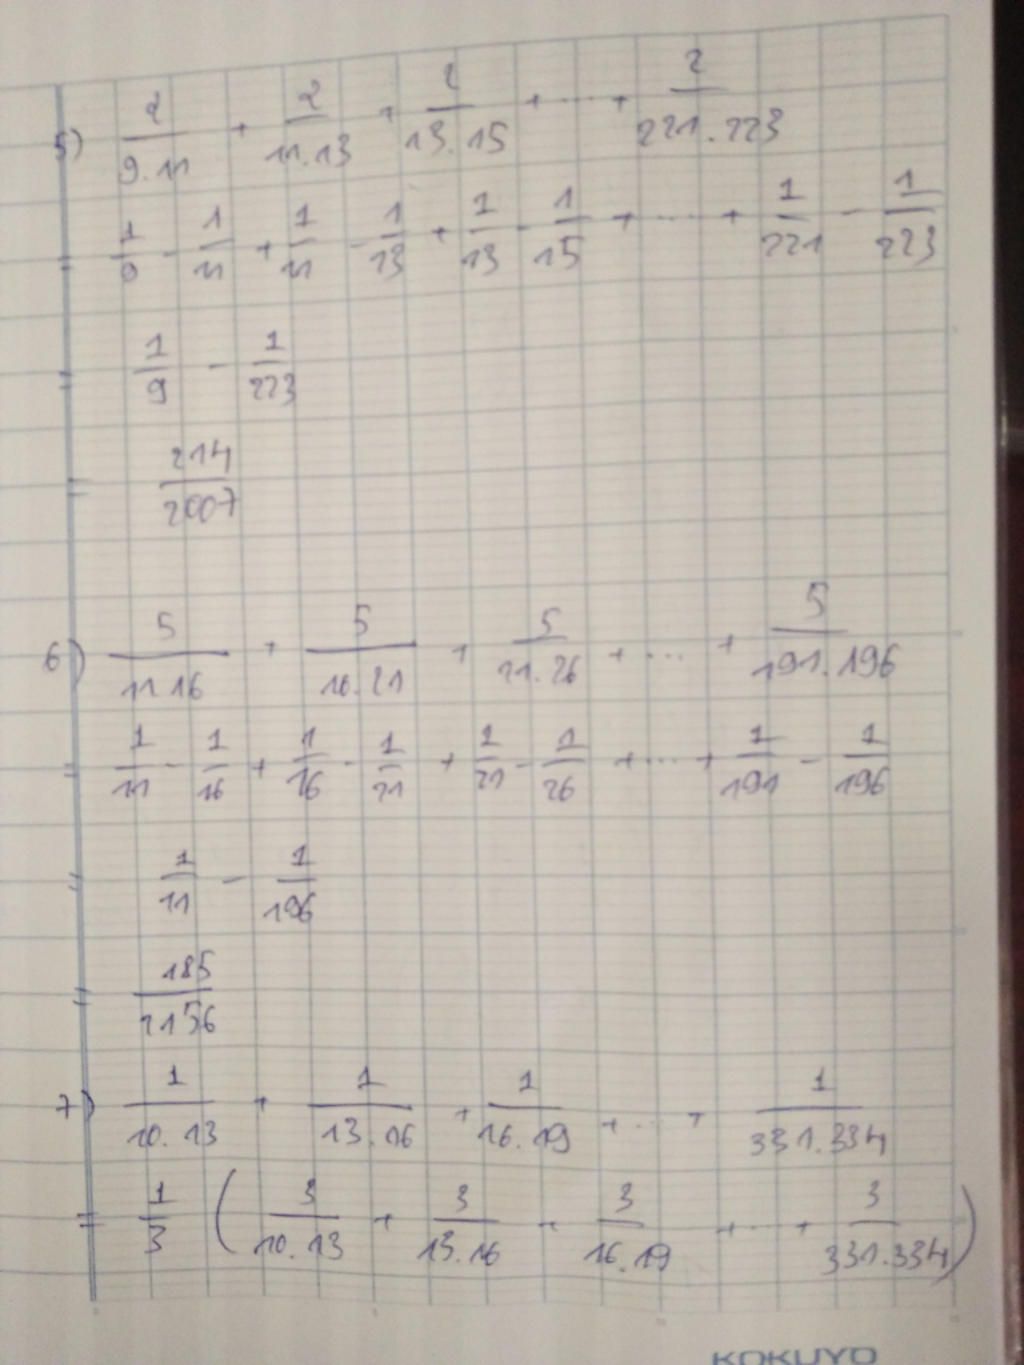 5) 2/9.11 + 2/11.13 + 2/13.15 + ... + 2/221.223
= 1/9 - 1/11 + 1/11 - 1/13 + 1/13 - 1/15 + ... + 1/221 - 1/223
= 1/9 - 1/223
= 214/2007
6) 5/11.16 + 5/16.21 + 5/21.26 + ... + 5/191.196
= 1/11 - 1/16 + 1/16 - 1/21 + 1/21 - 1/26 + ... + 1/191 - 1/196
= 1/11 - 1/196
= 185/2156
7) 1/10.13 + 1/13.16 + 1/16.19 + ... + 1/331.334
= 1/3 (3/10.13 + 3/13.16 + 3/16.19 + ... + 3/331.334)
KOKUYO